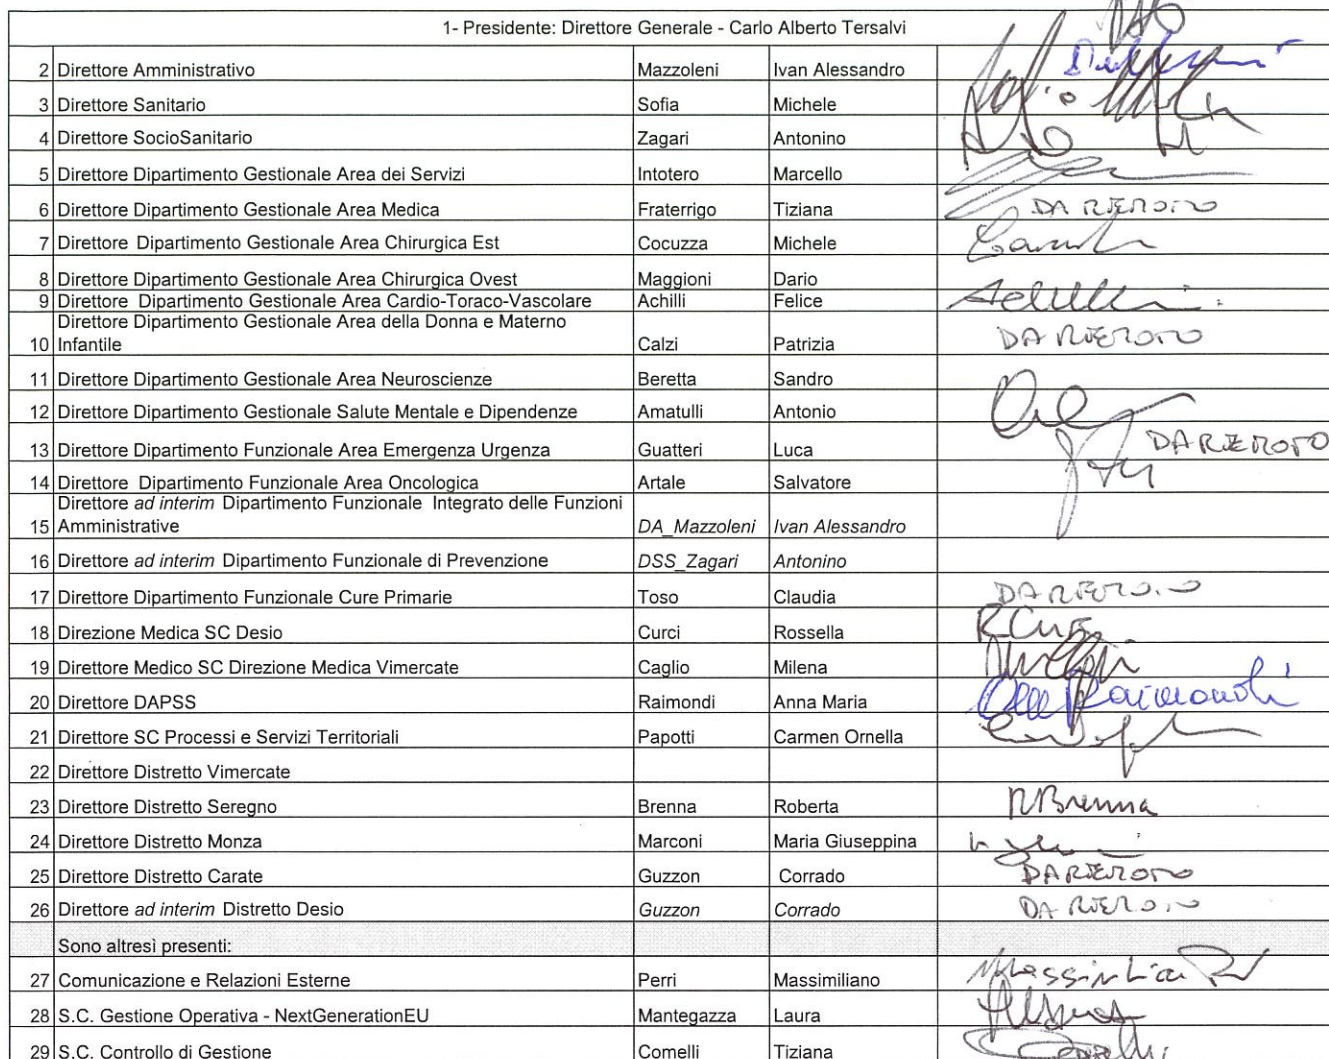 1- Presidente: Direttore Generale - Carlo Alberto Tersalvi
2 Direttore Amministrativo Mazzoleni Ivan Alessandro
3 Direttore Sanitario Sofia Michele
4 Direttore SocioSanitario Zagari Antonino
5 Direttore Dipartimento Gestionale Area dei Servizi Intotero Marcello
6 Direttore Dipartimento Gestionale Area Medica Fraterrigo Tiziana DA REMOTO
7 Direttore Dipartimento Gestionale Area Chirurgica Est Cocuzza Michele
8 Direttore Dipartimento Gestionale Area Chirurgica Ovest Maggioni Dario
9 Direttore Dipartimento Gestionale Area Cardio-Toraco-Vascolare Achilli Felice Achilli
Direttore Dipartimento Gestionale Area della Donna e Materno
10 Infantile Calzi Patrizia DA REMOTO
11 Direttore Dipartimento Gestionale Area Neuroscienze Beretta Sandro
12 Direttore Dipartimento Gestionale Salute Mentale e Dipendenze Amatulli Antonio
13 Direttore Dipartimento Funzionale Area Emergenza Urgenza Guatteri Luca DA REMOTO
14 Direttore Dipartimento Funzionale Area Oncologica Artale Salvatore
Direttore ad interim Dipartimento Funzionale Integrato delle Funzioni
15 Amministrative DA_Mazzoleni Ivan Alessandro
16 Direttore ad interim Dipartimento Funzionale di Prevenzione DSS_Zagari Antonino
17 Direttore Dipartimento Funzionale Cure Primarie Toso Claudia DA REMOTO
18 Direzione Medica SC Desio Curci Rossella R Curci
19 Direttore Medico SC Direzione Medica Vimercate Caglio Milena
20 Direttore DAPSS Raimondi Anna Maria Raimondi
21 Direttore SC Processi e Servizi Territoriali Papotti Carmen Ornella
22 Direttore Distretto Vimercate
23 Direttore Distretto Seregno Brenna Roberta RBrenna
24 Direttore Distretto Monza Marconi Maria Giuseppina
25 Direttore Distretto Carate Guzzon Corrado DA REMOTO
26 Direttore ad interim Distretto Desio Guzzon Corrado DA REMOTO
Sono altresì presenti:
27 Comunicazione e Relazioni Esterne Perri Massimiliano
28 S.C. Gestione Operativa - NextGenerationEU Mantegazza Laura
29 S.C. Controllo di Gestione Comelli Tiziana